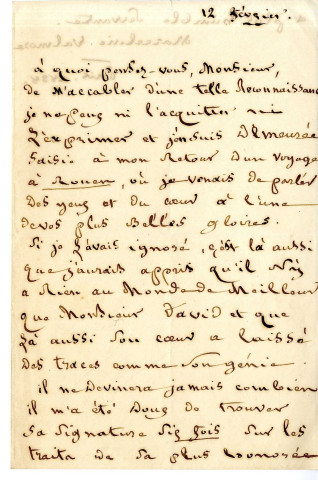 12 février.
à quoi pensez-vous, Monsieur,
de m'accabler d'une telle Reconnaissance
je ne peux ni l'acquitter ni
L'exprimer et j'en suis Demeurée
saisie à mon Retour D'un voyage
à Rouen, où je venais de parler
Des yeux et du cœur à L'une
de vos plus Belles gloires.
Si je L'avais ignoré, c'est là aussi
que j'aurais appris qu'il N'y
a Rien au Monde de Meilleur
que Monsieur David et que
Là aussi son cœur a Laissé
Des traces comme son génie.
il ne Devinera jamais combien
il m'a été Doux de trouver
sa signature six fois sur les
traits de sa plus honorée